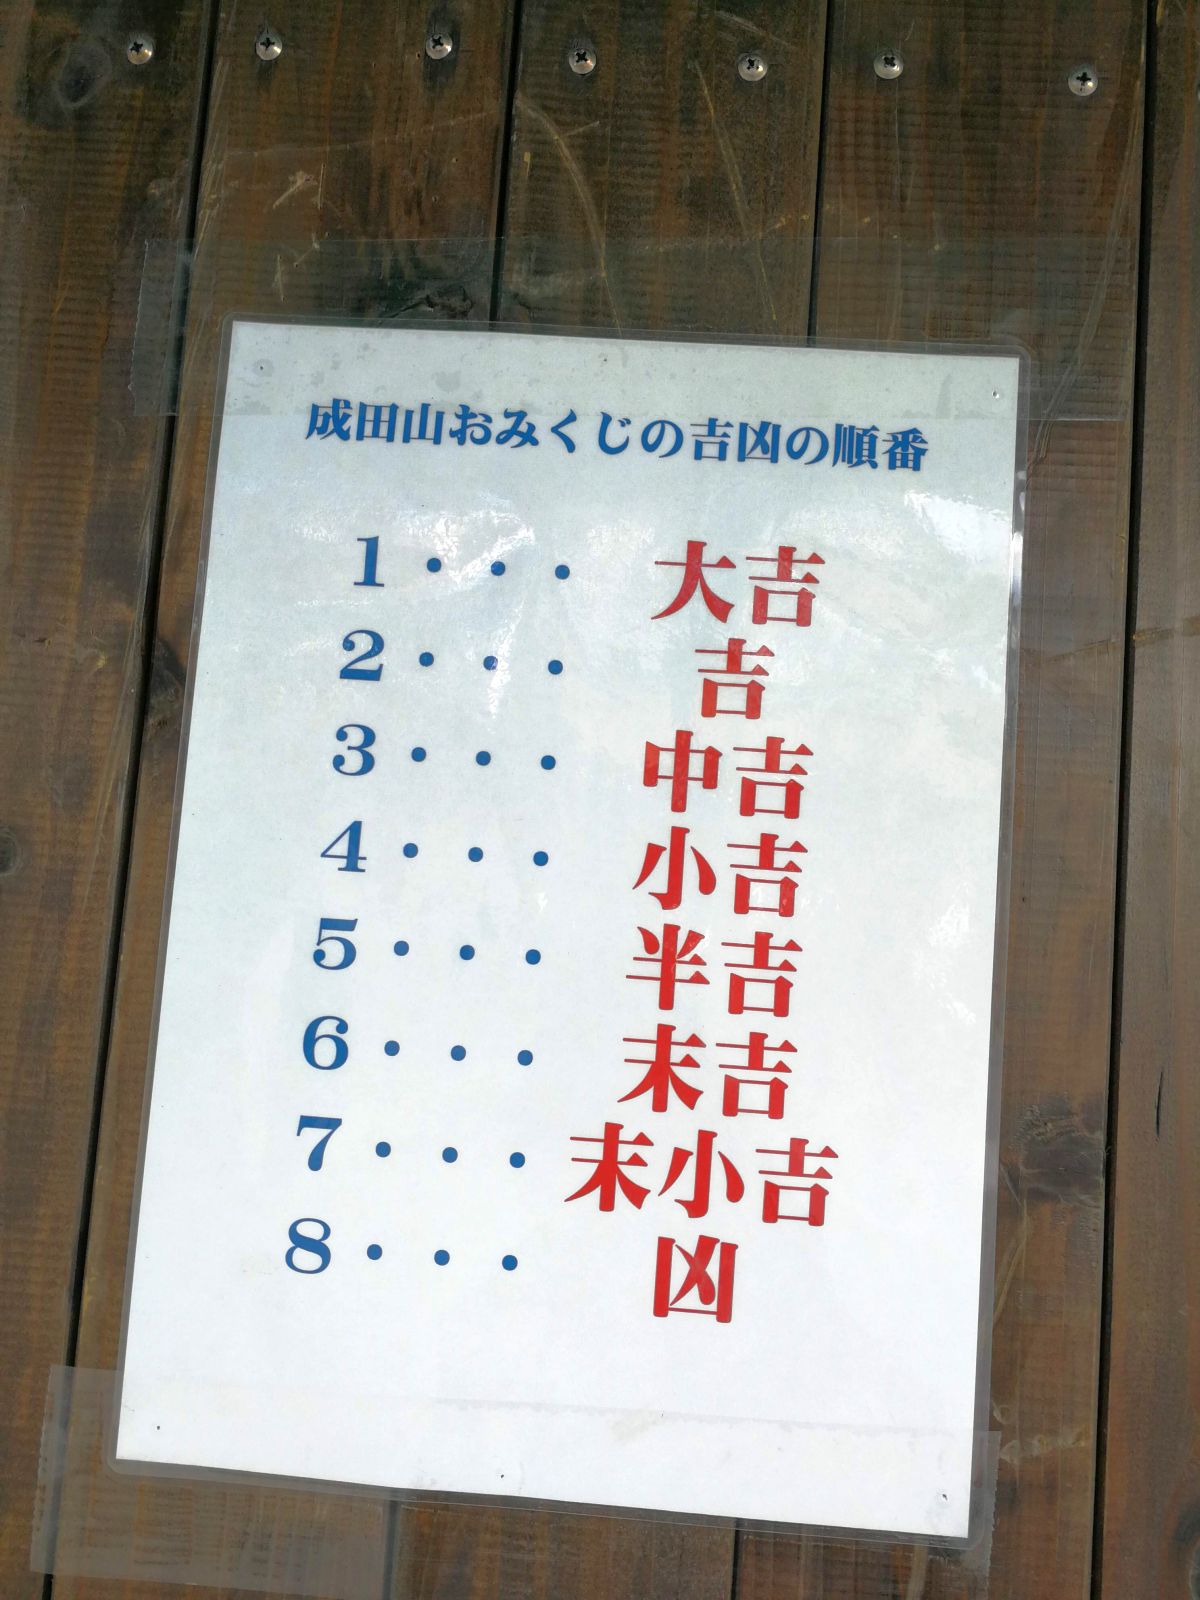 成田山おみくじの吉凶の順番
1・・・大吉
2・・・吉
3・・・中吉
4・・・小吉
5・・・半吉
6・・・末吉
7・・・末小吉
8・・・凶